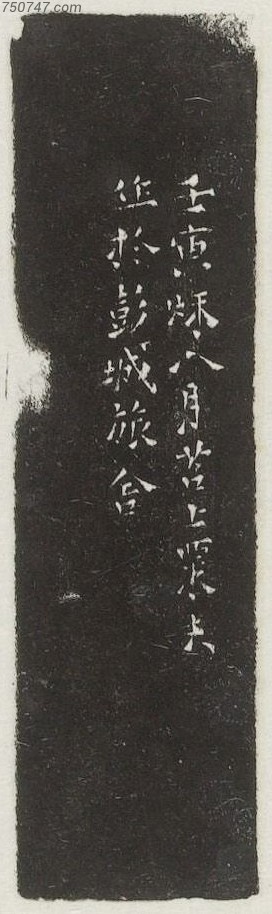 750747.com
壬寅秌八月苕上
作於彭城旅舍